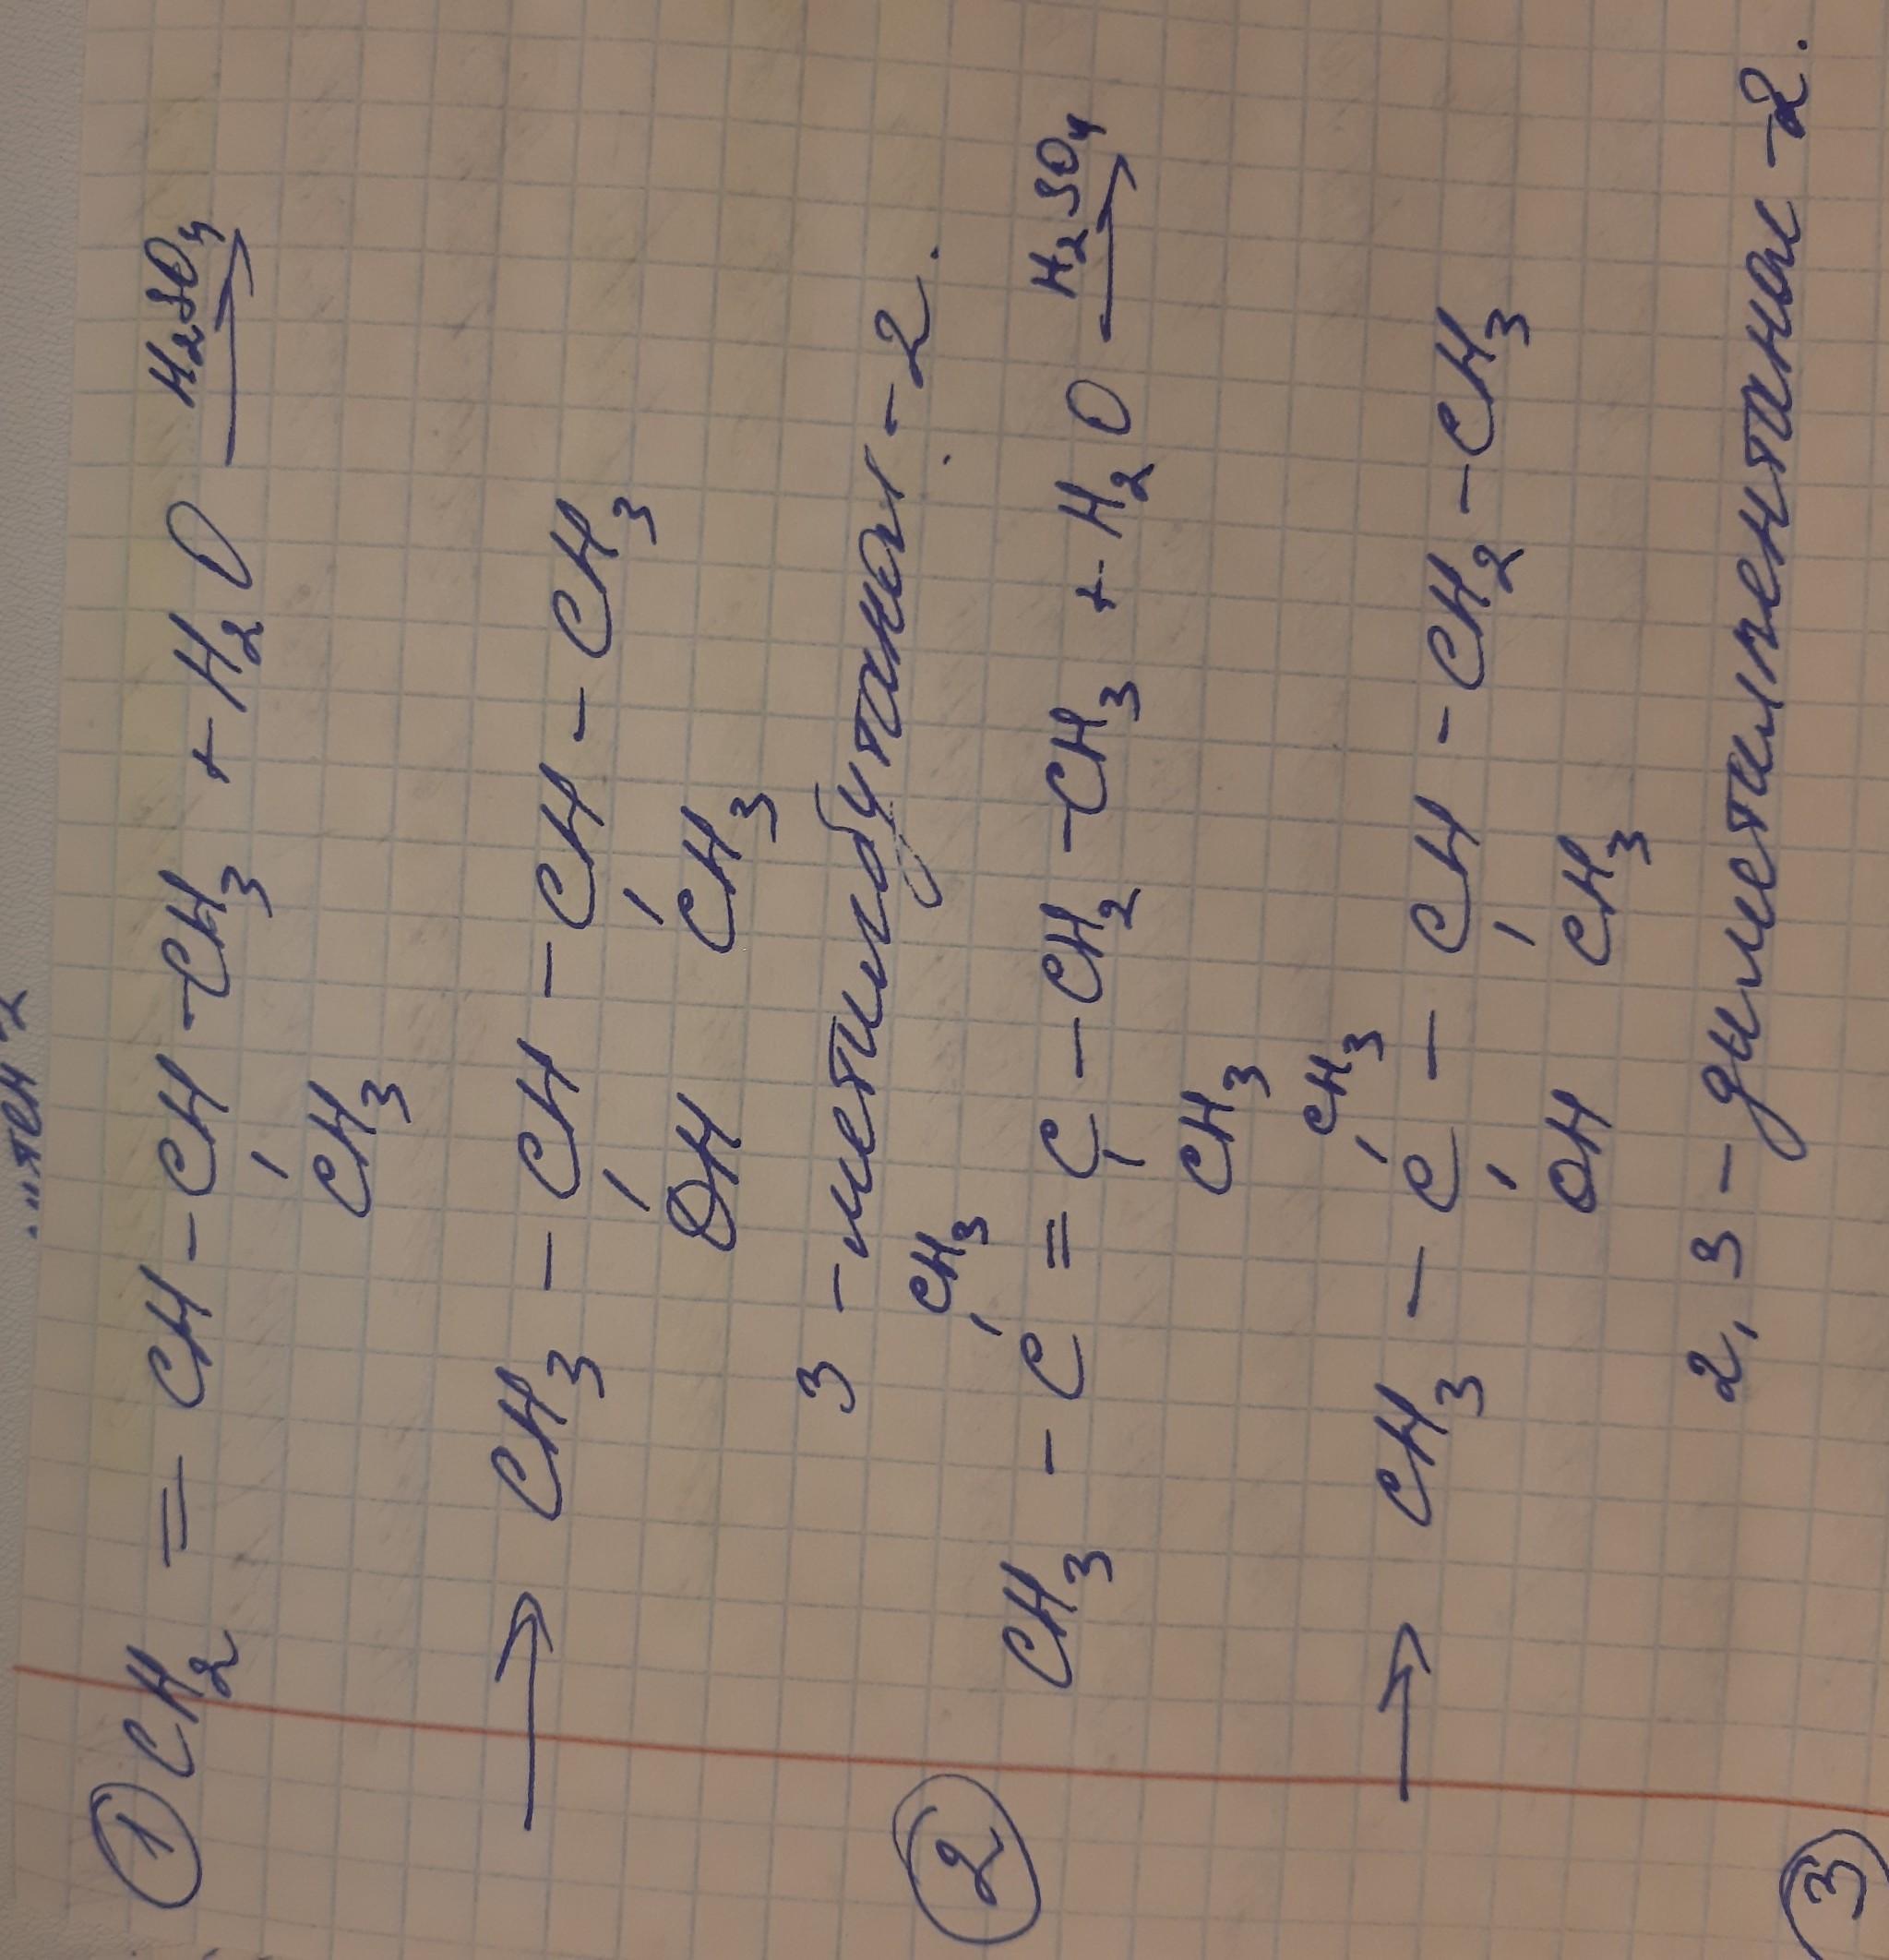 ① CH₂ = CH – CH – CH₃ + H₂O H₂SO₄ →
CH₃
→ CH₃ – CH – CH – CH₃
OH CH₃
3 – метилбутанол – 2.
CH₃
② CH₃ – C = C – CH₂ – CH₃ + H₂O H₂SO₄ →
CH₃
CH₃
→ CH₃ – C – CH – CH₂ – CH₃
OH CH₃
2,3 – диметилпентанол – 2.
③